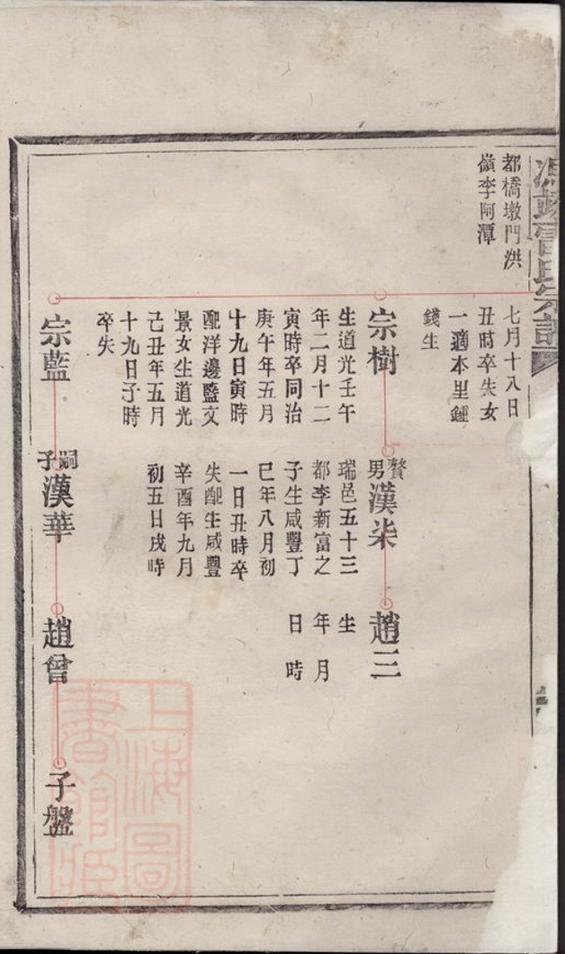 都橋墩門洪
嶺李阿潭
七月十八日
丑時卒失女
一適本里鍾
錢生
宗樹
生道光壬午
年二月十二
寅時卒同治
庚午年五月
十九日寅時
配洋邊藍文
景女生道光
己丑年五月
十九日子時
卒失
贅男漢柒
瑞邑五十三
都李新富之
子生咸豐丁
巳年八月初
一日丑時卒
失配生咸豐
辛酉年九月
初五日戌時
趙三
生
年月
日時
宗藍
嗣子漢華
趙曾
子盤
上海圖
書館藏